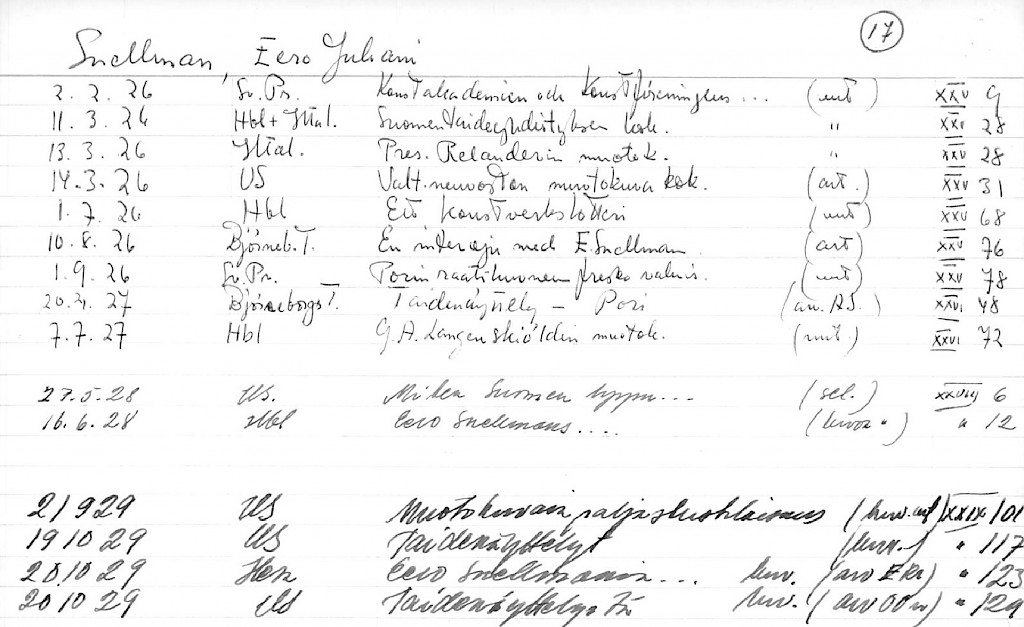 17
Snellman, Eero Juhani
2. 2. 26 Sv. Pr. Konstakademien och Konstföreningens ... (uut) XXV 9
11. 3. 26 Hbl + Iltal. Suomen taideyhdistyksen kok. " XXV 28
13. 3. 26 Iltal. Pres. Relanderin muotok. " XXV 28
14. 3. 26 US Valt. neuvoston muotokuva kok. (art.) XXV 31
1. 7. 26 Hbl Ett konstverkslotteri (uut) XXV 68
10. 8. 26 Björneb. T. En intervju med E. Snellman (art) XXV 76
1. 9. 26 Sv. Pr. Porin raatihuoneen fresko valmis. (uut) XXV 78
20. 4. 27 Björneborgs T. Taidenäyttely – Pori (arv. A.S.) XXVI 48
7. 7. 27 Hbl G. A. Langenskiöldin muotok. (uut.) XXVI 72
27. 5. 28 US. Miten Suomen (sel.) XXVIII 6
16. 6. 28 Hbl Eero Snellmans .... " 12
21 9 29 US Muotokuvain paljastustilaisuus (kuv. art) XXIX 101
19 10 29 US Taidenäyttelyt (kuv.) " 117
20 10 29 Eero Snellmanin ... kuv. (arv E Kr) " 123
20 10 29 US kuv. " 129